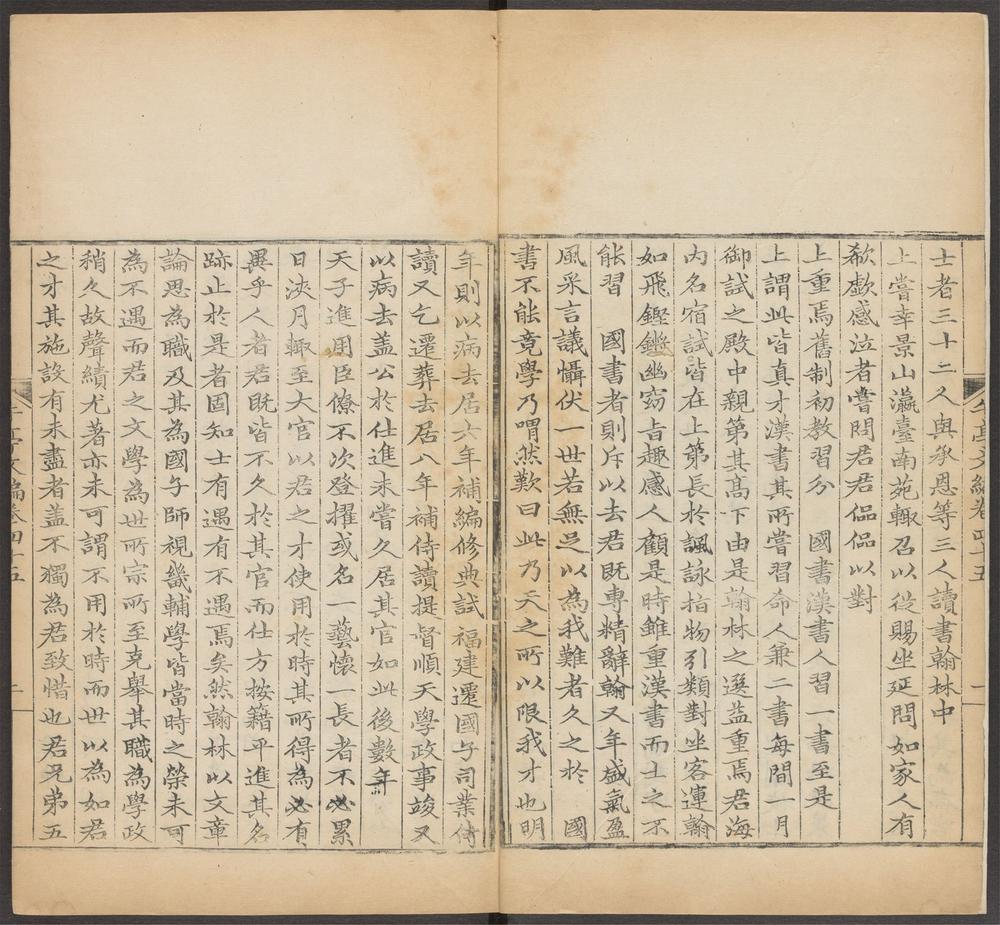 午亭文編卷四十五
士者三十二人與承恩等三人讀書翰林中
上嘗幸景山瀛臺南苑輙召以從賜坐延問如家人有
欷歔感泣者嘗問君君偘偘以對
上重焉舊制初教習分　國書漢書人習一書至是
上謂此皆真才漢書其所嘗習命人兼二書每間一月
御試之殿中親第其髙下由是翰林之選益重焉君海
内名宿試皆在上第長於諷詠指物引類對坐客運翰
如飛鏗鏘幽窈旨趣感人顧是時雖重漢書而士之不
能習　國書者則斥以去君既專精辭翰又年盛氣盈
風采言議懾伏一世若無足以為我難者久之於　國
書不能竟學乃喟然歎曰此乃天之所以限我才也明
年則以病去居六年補編修典試福建遷國子司業侍
讀又乞遷葬去居八年補侍讀提督順天學政事竣又
以病去盖公於仕進未嘗久居其官如此後數年
天子進用臣僚不次登擢或名一藝懷一長者不必累
日浹月輙至大官以君之才使用於時其所得為必有
異乎人者君既皆不久於其官而仕方按籍平進其名
跡止於是者固知士有遇有不遇焉矣然翰林以文章
論思為職及其為國子師視畿輔學皆當時之榮未可
為不遇而君之文學為世所宗所至克舉其職為學政
稍久故聲績尤著亦未可謂不用於時而世以為如君
之才其施設有未盡者盖不獨為君致惜也君兄弟五
午亭文編卷四十五
二